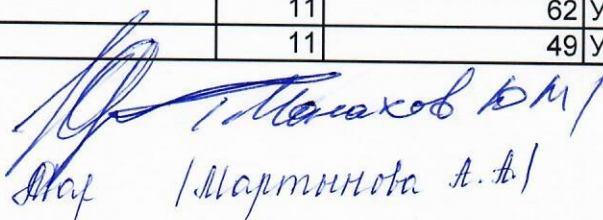 11 62 У
11 49 У
/Малахов Ю М/
/Мартынова А. А/